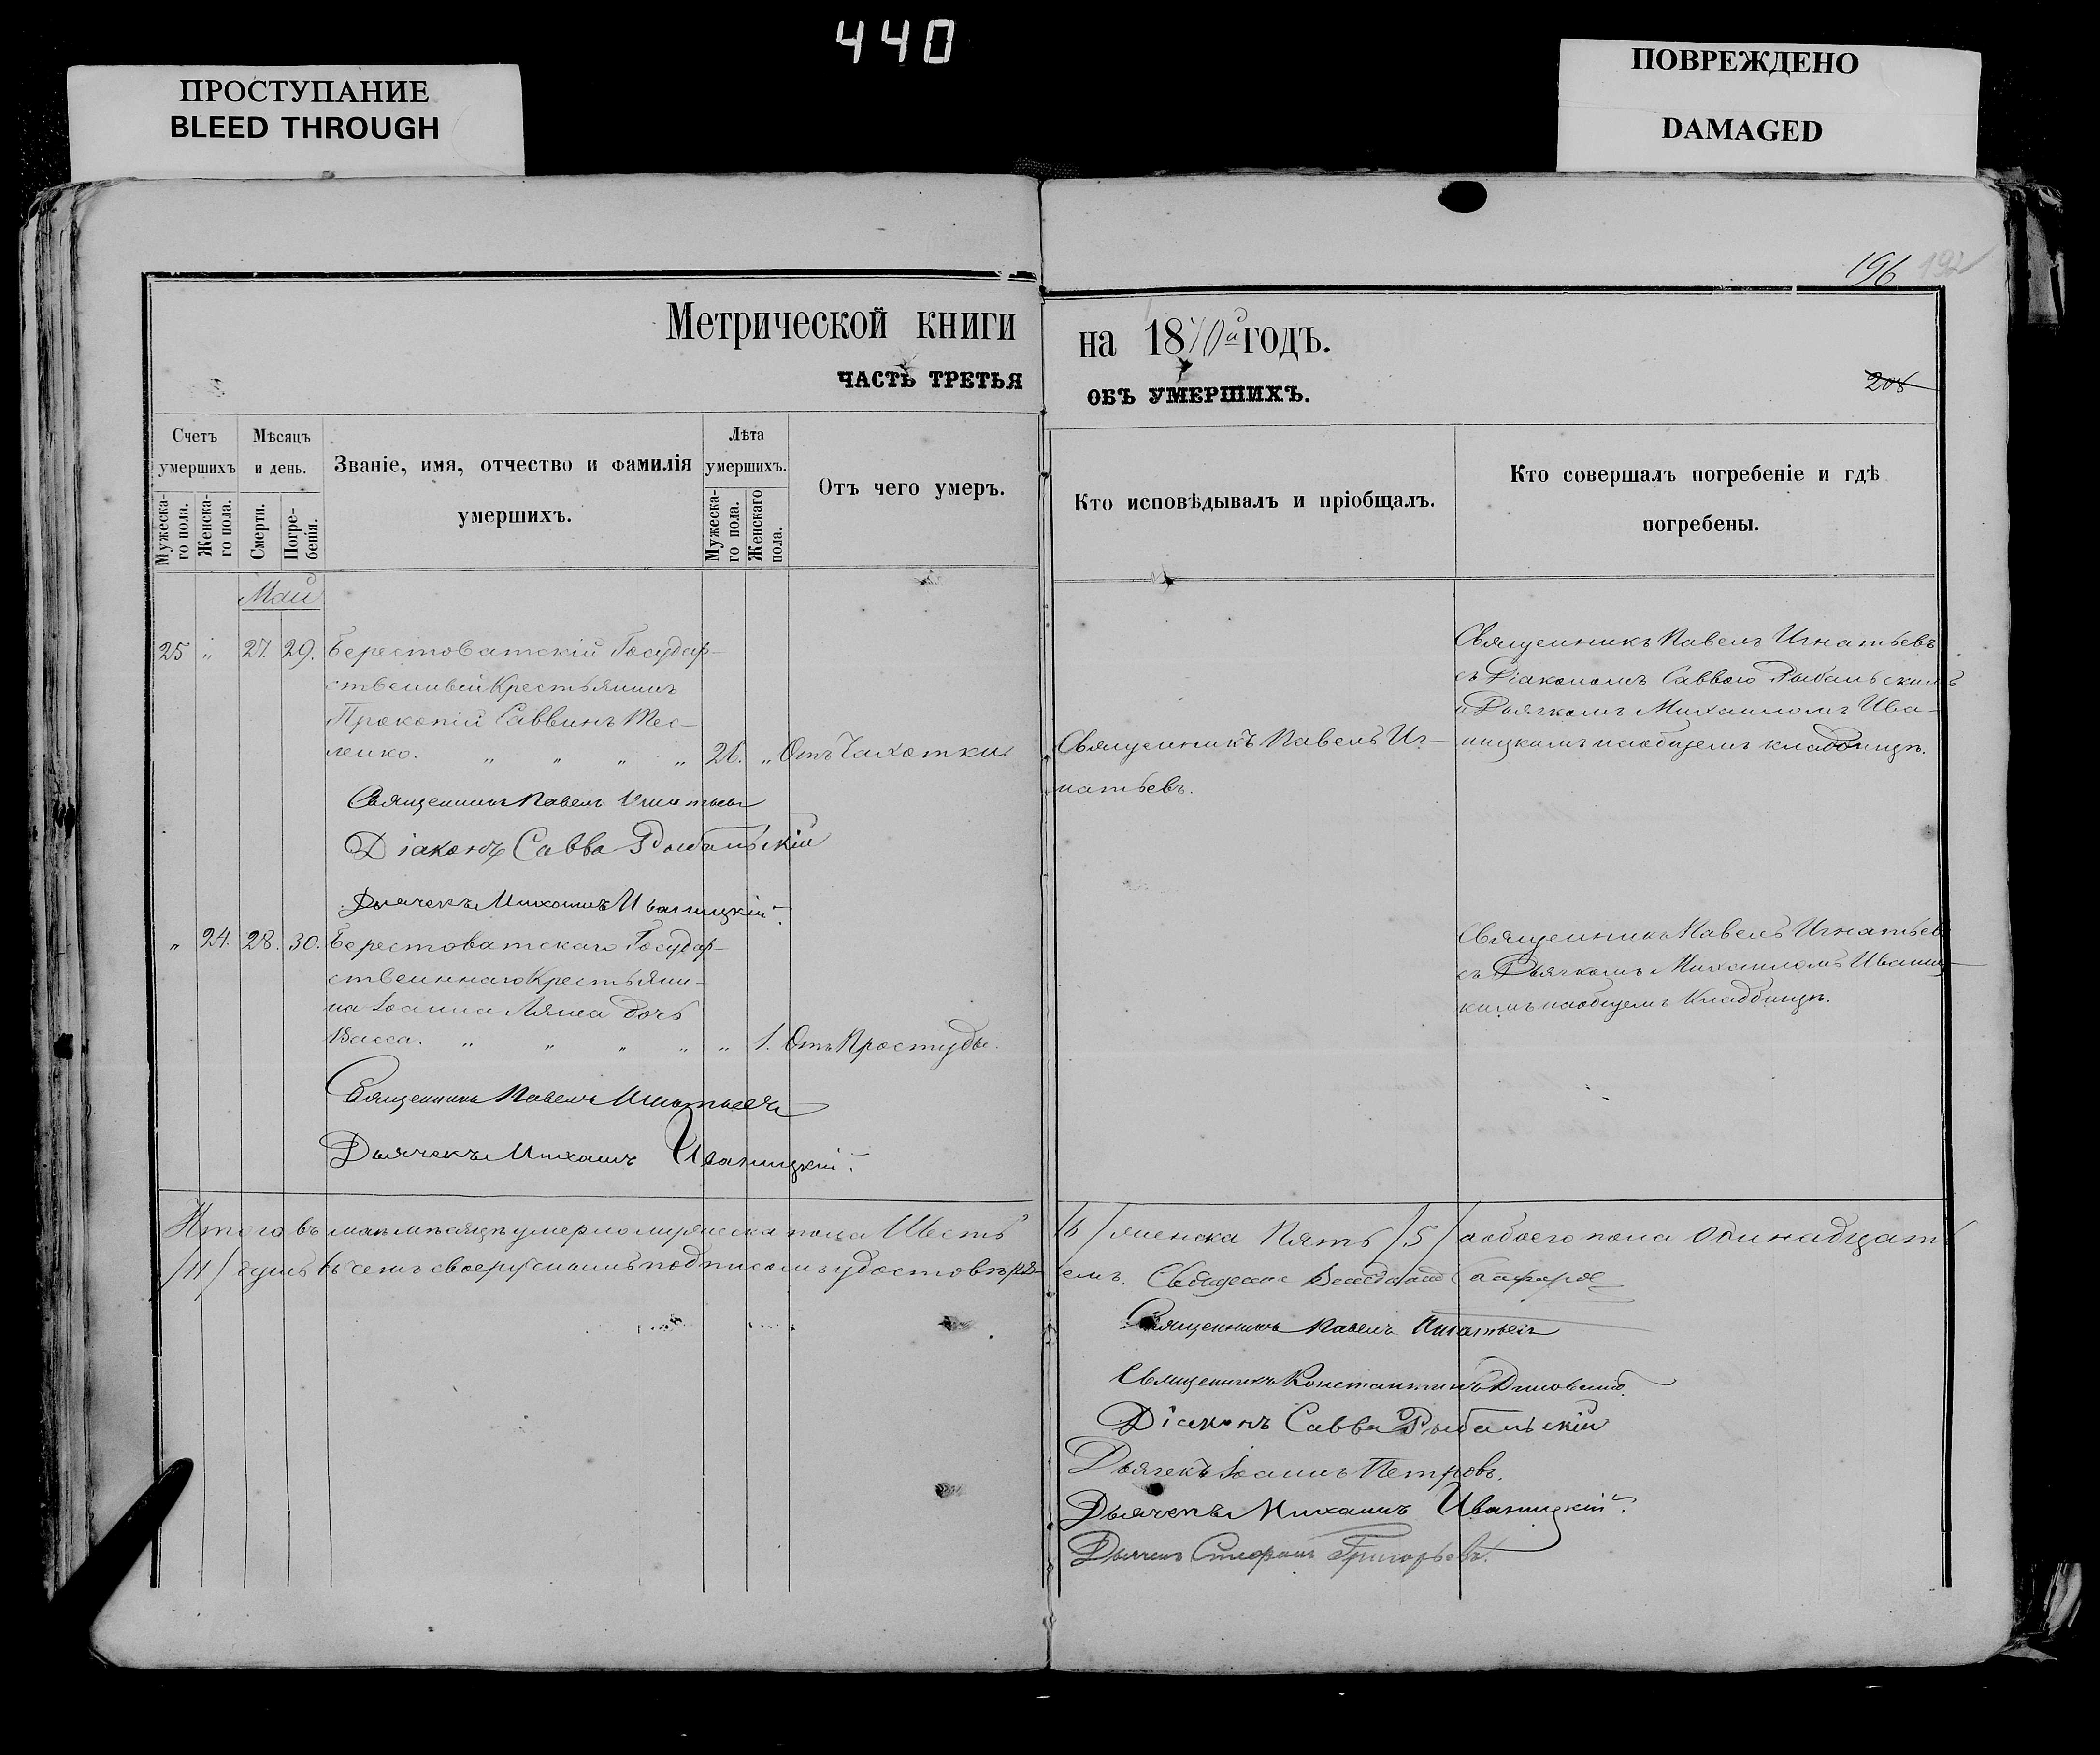 440
ПРОСТУПАНИЕ
BLEED THROUGH
ПОВРЕЖДЕНО
DAMAGED
196 192
Метрической книги на 1870й годъ.
ЧАСТЬ ТРЕТЬЯ ОБЪ УМЕРШИХЪ.
208
Счетъ умершихъ
Мужеска-го пола.
Женска-го пола.
Мѣсяцъ и день.
Смерти.
Погре-бенія.
Званіе, имя, отчество и фамилія умершихъ.
Лѣта умершихъ.
Мужеска-го пола.
Женскаго пола.
Отъ чего умеръ.
Кто исповѣдывалъ и пріобщалъ.
Кто совершалъ погребеніе и гдѣ погребены.
Май
25 „ 27. 29. Берестоватскій Государ-
ственный Крестьянинъ
Прокопій Саввинъ Тес-
ленко. „ „ „ „ 26. „ Отъ Чахотки
Священникъ Павелъ Иг-
натьевъ.
Священникъ Павелъ Игнатьевъ
съ Діакономъ Саввою Рыбальскимъ
и Дьячкомъ Михаиломъ Ива-
ницкимъ на общемъ кладбищѣ.
Священникъ Павелъ Игнатьевъ
Діаконъ Савва Рыбальскій
Дьячекъ Михаилъ Иваницкій.
„ 24. 28. 30. Берестоватскаго Государ-
ственнаго Крестьяни-
на Іоанна Ляша дочь
Васса. „ „ „ „ „ 1. Отъ Простуды.
Священникъ Павелъ Игнатьевъ
съ Дьячкомъ Михаиломъ Иваниц-
кимъ на общемъ Кладбищѣ.
Священникъ Павелъ Игнатьевъ
Дьячекъ Михаилъ Иваницкій.
Итого въ маѣ мѣсяцѣ умерло мужеска пола Шесть /6/ женска Пять /5/ а обоего пола Одинадцать
/11/ душъ въ чемъ своеручнымъ подписомъ удостовѣря-емъ.
Священникъ Павелъ Игнатьевъ
Священникъ Константинъ
Діаконъ Савва Рыбальскій
Дьячекъ Іоаннъ Петровъ.
Дьячекъ Михаилъ Иваницкій.
Дьячекъ Стефанъ Григорьевъ.